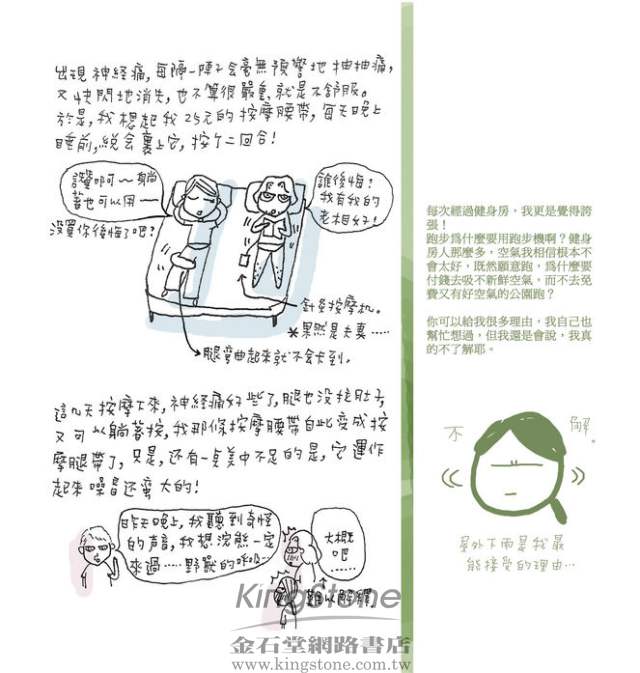 出現神経痛,每隔一陣子會毫無預警地抽抽痛,
又快閃地消失,也不算很嚴重,就是不舒服。
於是,我想起我25元的按摩腰帶,每天晚上
睡前,総会裹上它,按个二回合!
誰後悔!
我有我的
老相好!
啊~躺
著也可以用一
沒買你後悔了吧?
針灸按摩机。
*果然是夫妻……
腿彎曲起來就不会卡到。
這几天按摩下來,神經痛好些了,腿也没挂肚子,
又可以躺著按,我那條按摩腰帶自此变成按
摩腿帶了,只是,还有一点美中不足的是,它運作
起來噪音还蛮大的!
昨天晚上,我聽到奇怪
的声音,我想浣熊一定
來過……野獸的呼吸…
大概
吧……
難以解釋
每次經過健身房,我更是覺得誇
張!
跑步為什麼要用跑步機啊?健身
房人那麼多,空氣我相信根本不
會太好,既然願意跑,為什麼要
付錢去吸不新鮮空氣,而不去免
費又有好空氣的公園跑?
你可以給我很多理由,我自己也
幫忙想過,但我還是會說,我真
的不了解耶。
不 解。
屋外下雨是我最
能接受的理由…
KingStone
金石堂網路書店
www.kingstone.com.tw